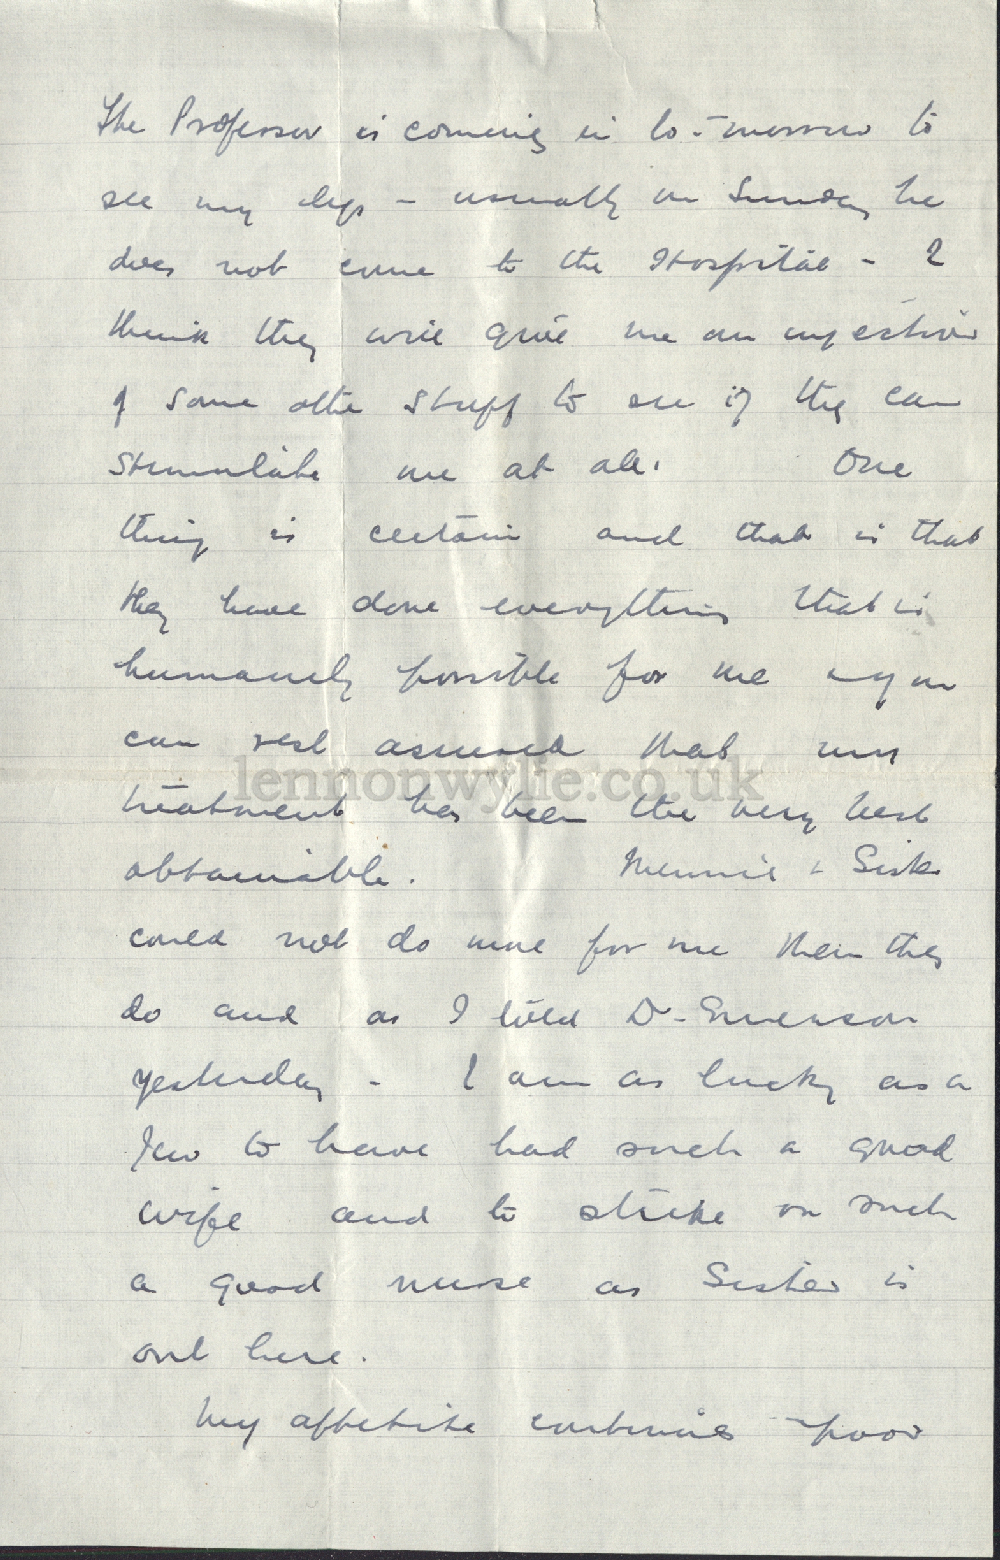 The Professor is coming in to-morrow to
see my legs - usually on Sunday he
does not come to the Hospital - I
think they will give me an injection
of some other stuff to see if they can
stimulate me at all. One
thing is certain and that is that
they have done everything that is
humanely possible for me
can rest assured that my
lennonwylie.co.uk
treatment has been the very best
obtainable. Mennie + Sister
could not do more for me than they
do and as I told Dr. Emerson
yesterday - I am as lucky as a
Jew to have had such a good
wife and to strike on such
a good nurse as Sister is
out here.
My appetite continues poor